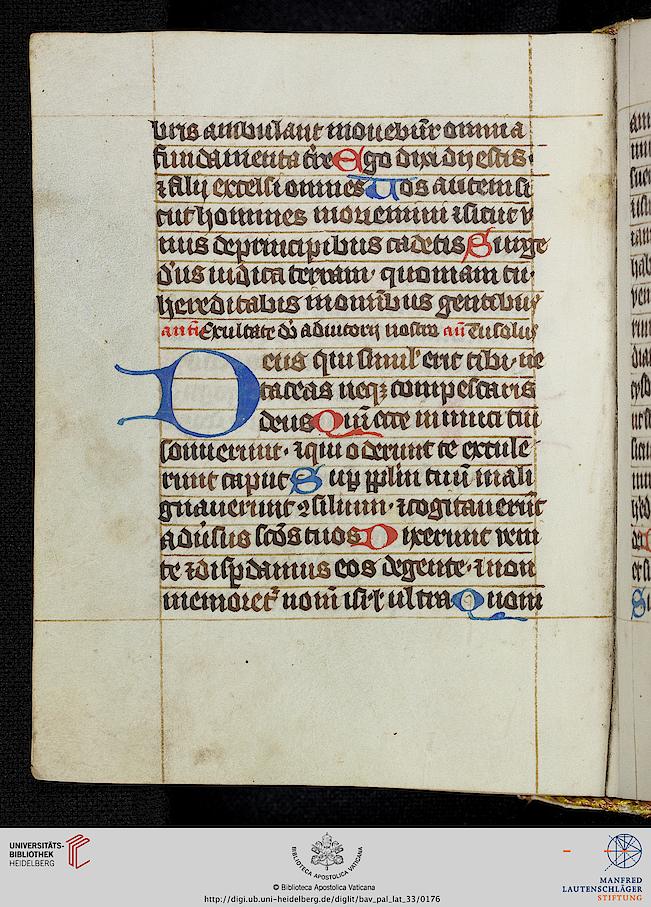 bris ambulant mouebūt̄ omnia
fundamenta tr̄re Ego dixi dii estis·
⁊ filii excelsi omnes Uos autem si
cut homines moriemini ⁊ sicut v
nus de principibus cadetis Surge
d's iudica terram· quoniam tu·
hereditabis in omībus gentibus
antī Exultate dō adiutori nostro an̄ Tu solus
Deus qui simul' erit tibi· ne
taceas neqꝫ compescaris
deus Qm̄ ecce inimici tui
sonuerunt· ⁊ qui oderunt te extule
runt caput Suꝑ ppl̄m tuū mali
gnauerunt ꝯsilium· ⁊ cogitauerūt
adūsus sc̄os tuos Dixerunt veni
te ⁊ disꝑdamus eos de gente· ⁊ non
memoret' nom̄ isr̄l ultra Quoni
UNIVERSITÄTS-
BIBLIOTHEK
HEIDELBERG
BIBLIOTECA APOSTOLICA VATICANA
© Biblioteca Apostolica Vaticana
http://digi.ub.uni-heidelberg.de/diglit/bav_pal_lat_33/0176
MANFRED
LAUTENSCHLÄGER
STIFTUNG